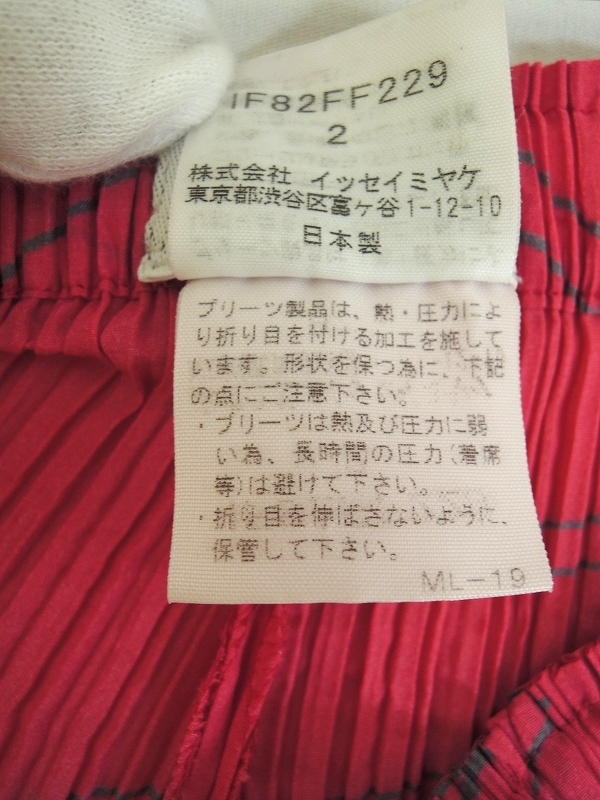 IF82FF229
2
株式会社 イッセイミヤケ
東京都渋谷区富ヶ谷1-12-10
日本製
プリーツ製品は、熱・圧力によ
り折り目を付ける加工を施して
います。形状を保つ為に、下記
の点にご注意下さい。
・プリーツは熱及び圧力に弱
い為、長時間の圧力(着席
等)は避けて下さい。
・折り目を伸ばさないように、
保管して下さい。
ML-19